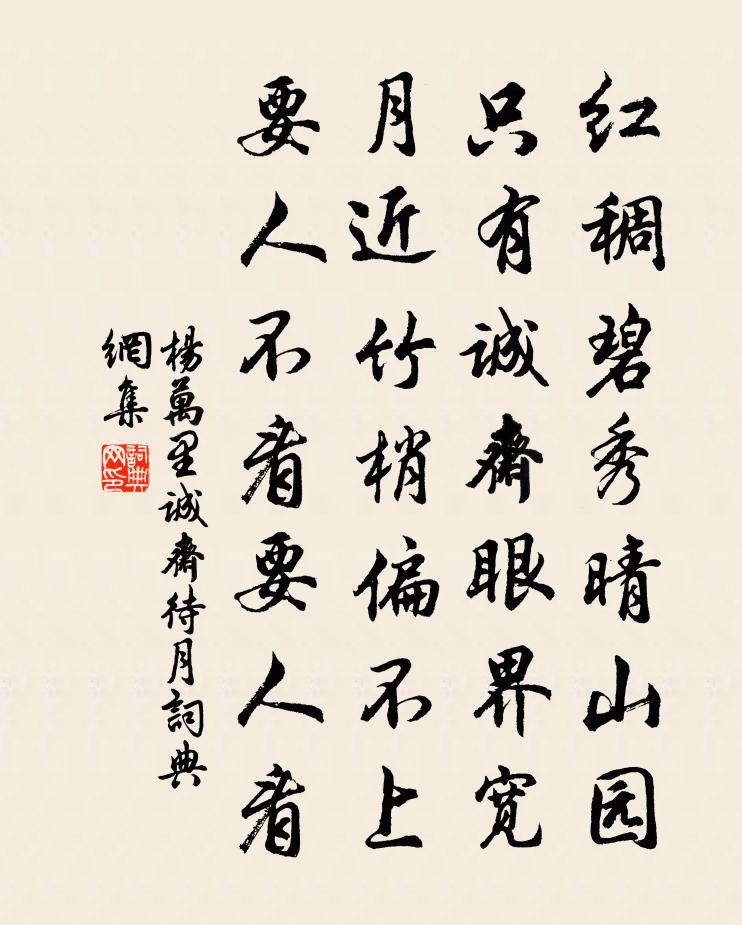 红稠碧秀晴山园
只有誠齋眼界寬
月近竹梢偏不上
要人不看要人看
楊萬里誠齋待月詞典
網集
詞典网印